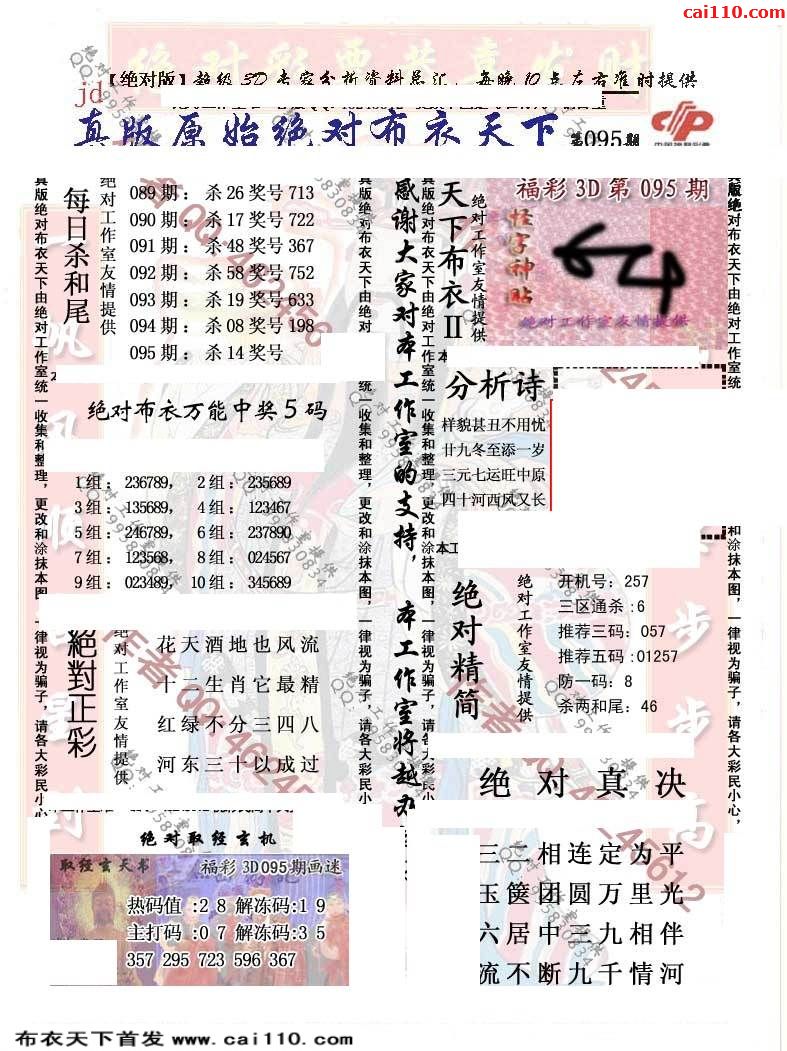 cai110.com
绝对彩票共享发财
【绝对版】超级3D专家分析资料总汇，每晚10点左右准时提供
jd
真版原始绝对布衣天下
第095期
每日杀和尾
绝对工作室友情提供
089期：杀26奖号713
090期：杀17奖号722
091期：杀48奖号367
092期：杀58奖号752
093期：杀19奖号633
094期：杀08奖号198
095期：杀14奖号
感谢大家对本工作室的支持，本工作室将越办
天下布衣II
绝对工作室友情提供
福彩3D第095期
怪字神贴
绝对工作室友情提供
真版绝对布衣天下由绝对工作室统一收集和整理，更改和涂抹本图，一律视为骗子，请各大彩民小心，
绝对布衣万能中奖5码
1组：236789，　2组：235689
3组：135689，　4组：123467
5组：246789，　6组：237890
7组：123568，　8组：024567
9组：023489，　10组：345689
分析诗
样貌甚丑不用忧
廿九冬至添一岁
三元七运旺中原
四十河西风又长
絕對正彩
绝对工作室友情提供
花天酒地也风流
十二生肖它最精
红绿不分三四八
河东三十以成过
绝对精简
绝对工作室友情提供
开机号：257
三区通杀：6
推荐三码：057
推荐五码：01257
防一码：8
杀两和尾：46
绝对取经玄机
取经玄天书
福彩3D095期画迷
热码值：28解冻码：19
主打码：07解冻码：35
357 295 723 596 367
绝对真决
三二相连定为平
玉篋团圆万里光
六居中三九相伴
流不断九千情河
步步高
布衣天下首发 www.cai110.com